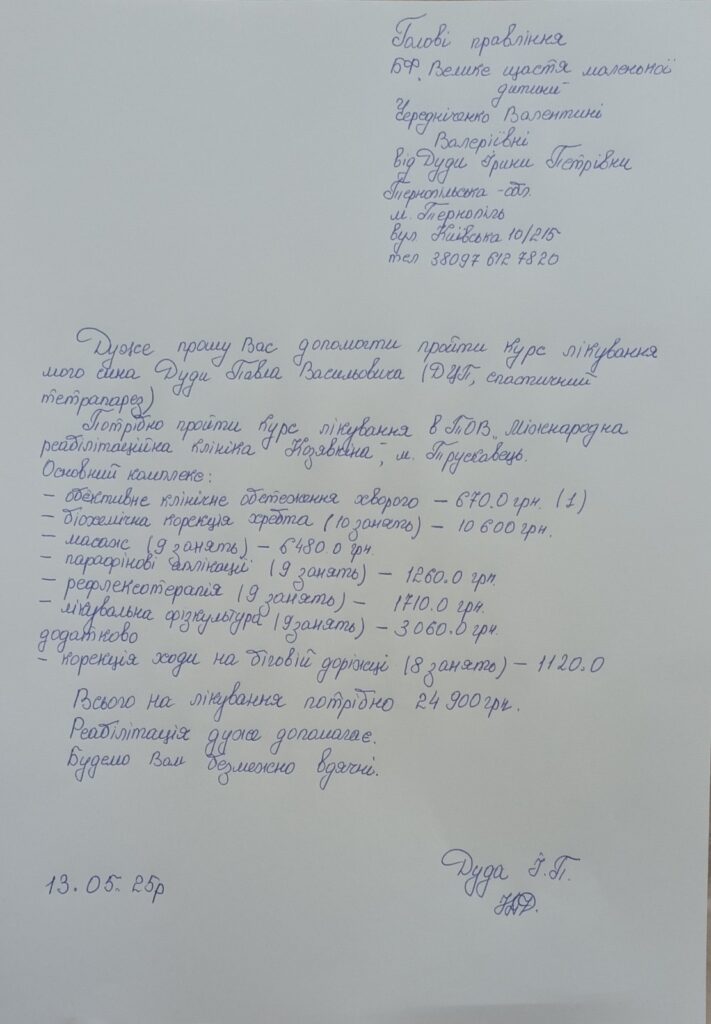 Голові правління
БФ „Велике щастя маленької
дитини"
Чередніченко Валентині
Валеріївні
від Дуди Ірини Петрівни
Тернопільська обл.
м. Тернопіль
вул. Київська 10/215
тел 38097 612 7820
Дуже прошу Вас допомогти пройти курс лікування
мого сина Дуди Павла Васильовича (ДЦП, спастичний
тетрапарез)
Потрібно пройти курс лікування в ТОВ „Міжнародна
реабілітаційна клініка Козявкіна", м. Трускавець.
Основний комплекс:
– обєктивне клінічне обстеження хворого – 670.0 грн. (1)
– біохемічна корекція хребта (10 занять) – 10 600 грн.
– масаж (9 занять) – 6480.0 грн.
– парафінові аплікації (9 занять) – 1260.0 грн.
– рефлексотерапія (9 занять) – 1710.0 грн.
– лікувальна фізкультура (9 занять) – 3060.0 грн.
додатково
– корекція ходи на біговій доріжці (8 занять) – 1120.0
Всього на лікування потрібно 24 900 грн.
Реабілітація дуже допомагає.
Будемо Вам безмежно вдячні.
Дуда І. П.
13.05.25р